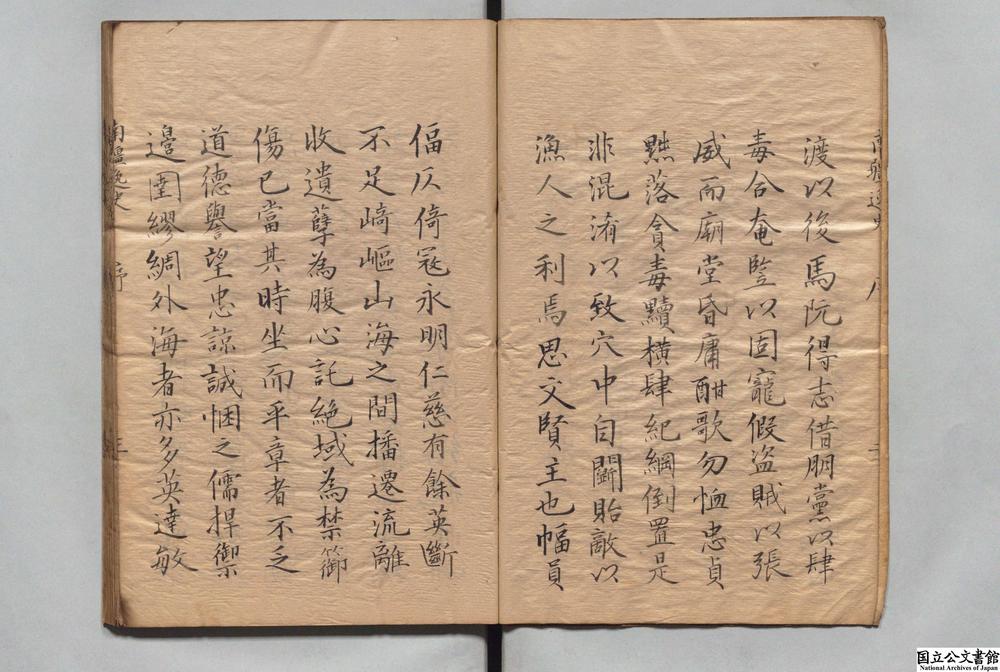 渡以後馬阮得志借朋黨以肆
毒合奄豎以固寵假盜賊以張
威而廟堂昏庸酣歌勿恤忠貞
黜落貪毒黷橫肆紀綱倒置是
非混淆以致穴中自鬬貽敵以
漁人之利焉思文賢主也幅員
偪仄倚寇永明仁慈有餘英斷
不足崎嶇山海之間播遷流離
收遺孽為腹心託絶域為禁籞
傷已當其時坐而平章者不乏
道德譽望忠諒誠悃之儒捍御
邊圉繆綢外海者亦多英達敏
南疆逸史 序 三
国立公文書館
National Archives of Japan